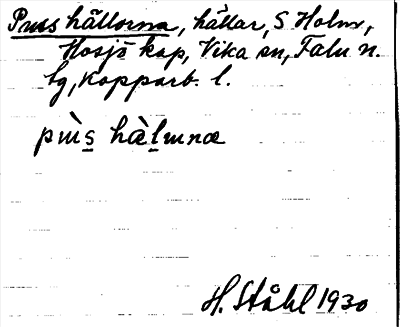 Puss hällorna, hällar, S Holm,
Hosjö kap, Vika sn, Falu n.
lg, Kopparb. l.
H. Ståhl 1930